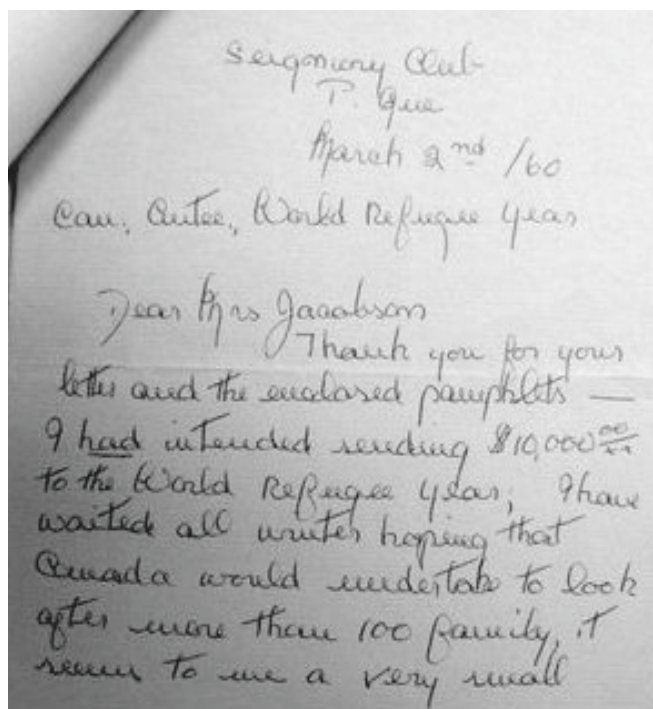 Seigniory Club
P. Que
March 2nd /60
Can. Cttee., World Refugee Year
Dear Mrs Jacobson
Thank you for your
letter and the enclosed pamphlets —
I had intended sending $10,000 00/xx
to the World Refugee Year; I have
waited all winter hoping that
Canada would undertake to look
after more than 100 family, it
seems to me a very small